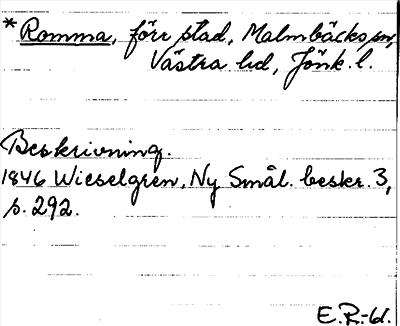 * Romma, förr stad, Malmbäcks sn,
Västra hd, Jönk. l.
Beskrivning.
1846 Wieselgren, Ny Smål. beskr. 3,
s. 292.
E.R.-61.